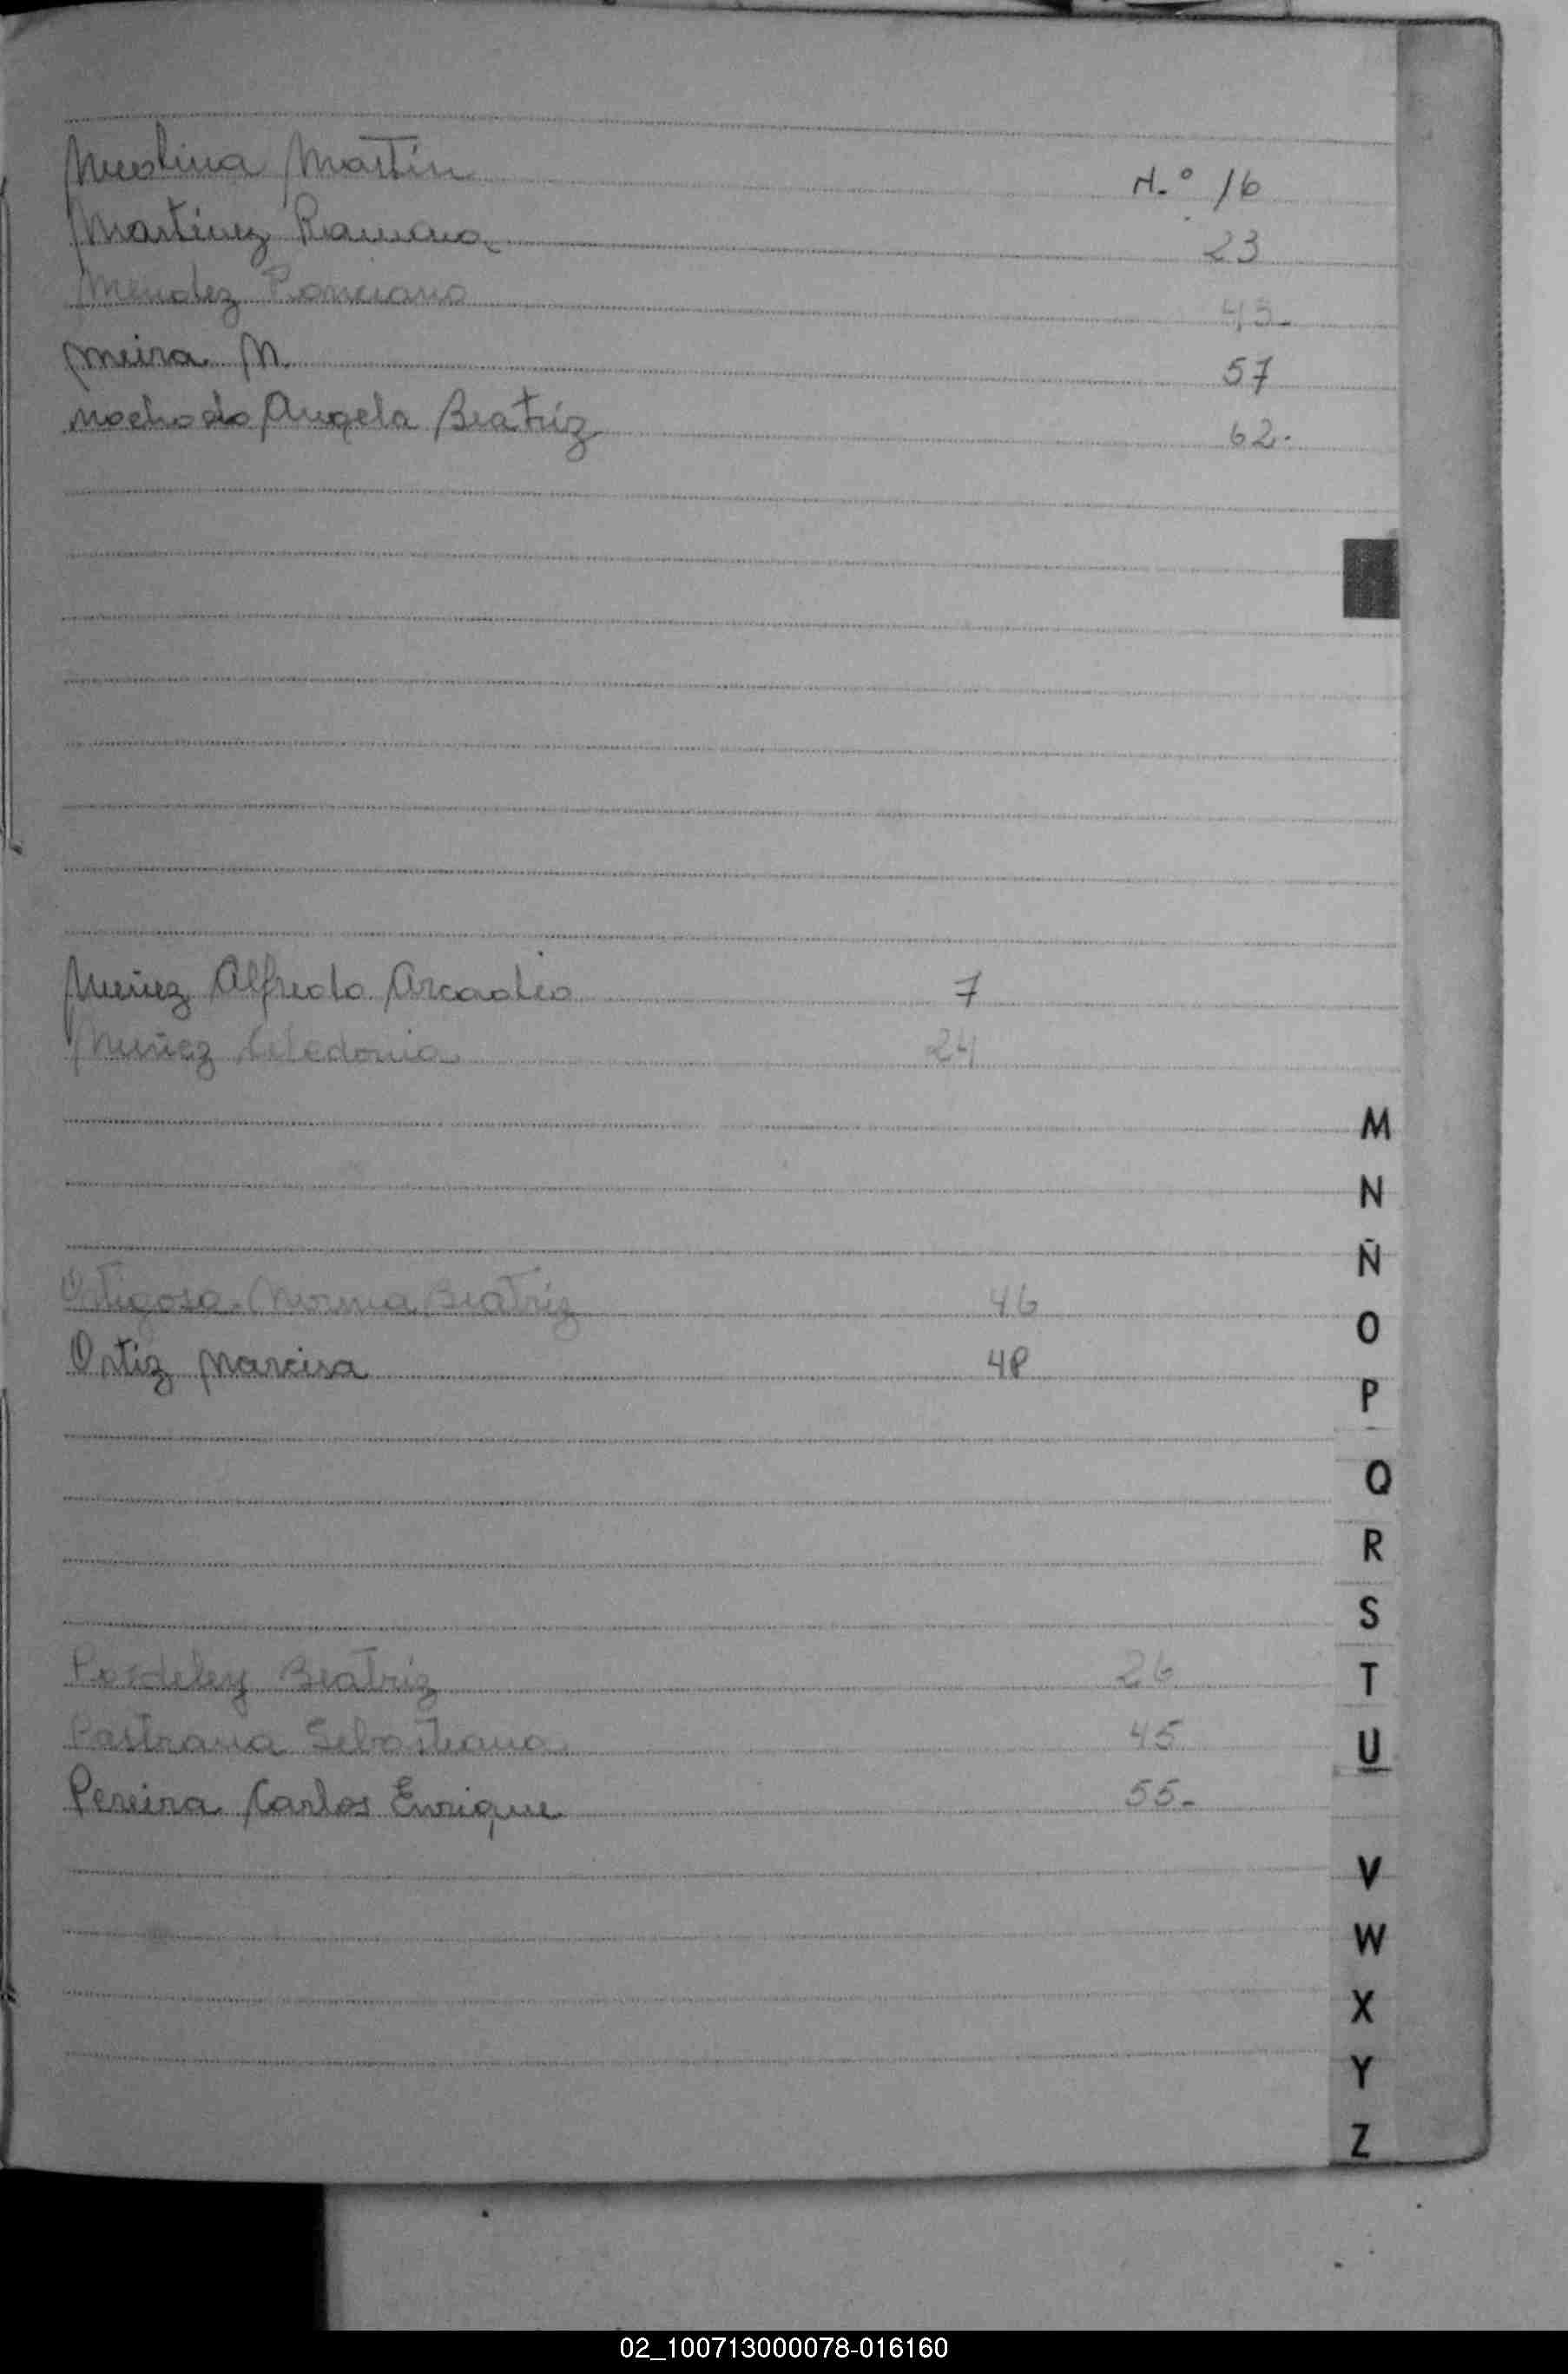 Molina Martín N.º 16
Martínez Ramona 23
Mendez Ponciano 43-
Meira M. 57
Machado Angela Beatríz 62.
Nuñez Alfredo Arcadio 7
Nuñez Celedonia 24
M
N
Ñ
Ortigosa Norma Beatríz 46
O
Ortiz Narcisa 48
P
Q
R
S
Beatríz 26
T
Pastrana Sebastiana 45
U
Pereira Carlos Enrique 55-
V
W
X
Y
Z
02_100713000078-016160